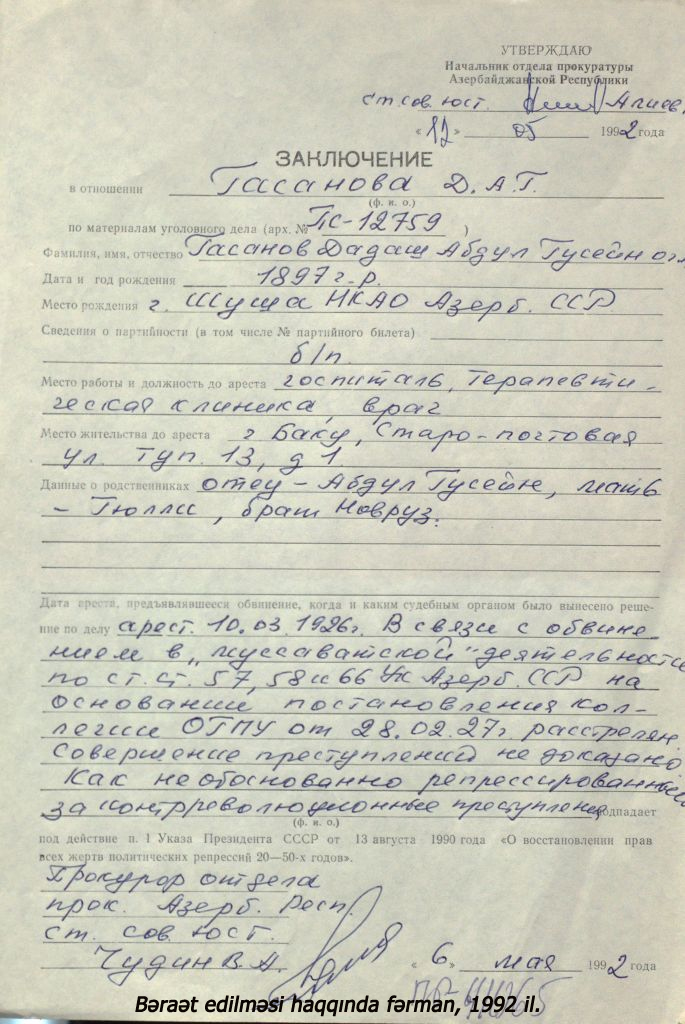 УТВЕРЖДАЮ
Начальник отдела прокуратуры
Азербайджанской Республики
ст. сов. юст. Алиев.
«12» 05 1992 года
ЗАКЛЮЧЕНИЕ
в отношении Гасанова Д. А. Г.
(ф. и. о.)
по материалам уголовного дела (арх. № ПС-12759 )
Фамилия, имя, отчество Гасанов Дадаш Абдул Гусейн огл
Дата и год рождения 1897 г. р.
Место рождения г. Шуша НКАО Азерб. ССР
Сведения о партийности (в том числе № партийного билета)
б/п.
Место работы и должность до ареста госпиталь, терапевти-
ческая клиника, врач
Место жительства до ареста г Баку, Старо-почтовая
ул. туп. 13, д 1
Данные о родственниках отец – Абдул Гусейн, мать
– Гюлли, брат Новруз.
Дата ареста, предъявлявшееся обвинение, когда и каким судебным органом было вынесено реше-
ние по делу арест. 10.03.1926г. В связи с обвине-
нием в „муссаватской" деятельности
по ст. ст. 57, 58 и 66 УК Азерб. ССР на
основании постановления кол-
легии ОГПУ от 28.02.27г расстрелян
Совершение преступлений не доказано
Как необоснованно репрессированный
за контрреволюционные преступления подпадает
(ф. и. о.)
под действие п. 1 Указа Президента СССР от 13 августа 1990 года «О восстановлении прав
всех жертв политических репрессий 20—50-х годов».
Прокурор отдела
прок. Азерб. Респ.
ст. сов. юст.
Чудин В. А.
«6» мая 1992 года
Bəraət edilməsi haqqında fərman, 1992 il.